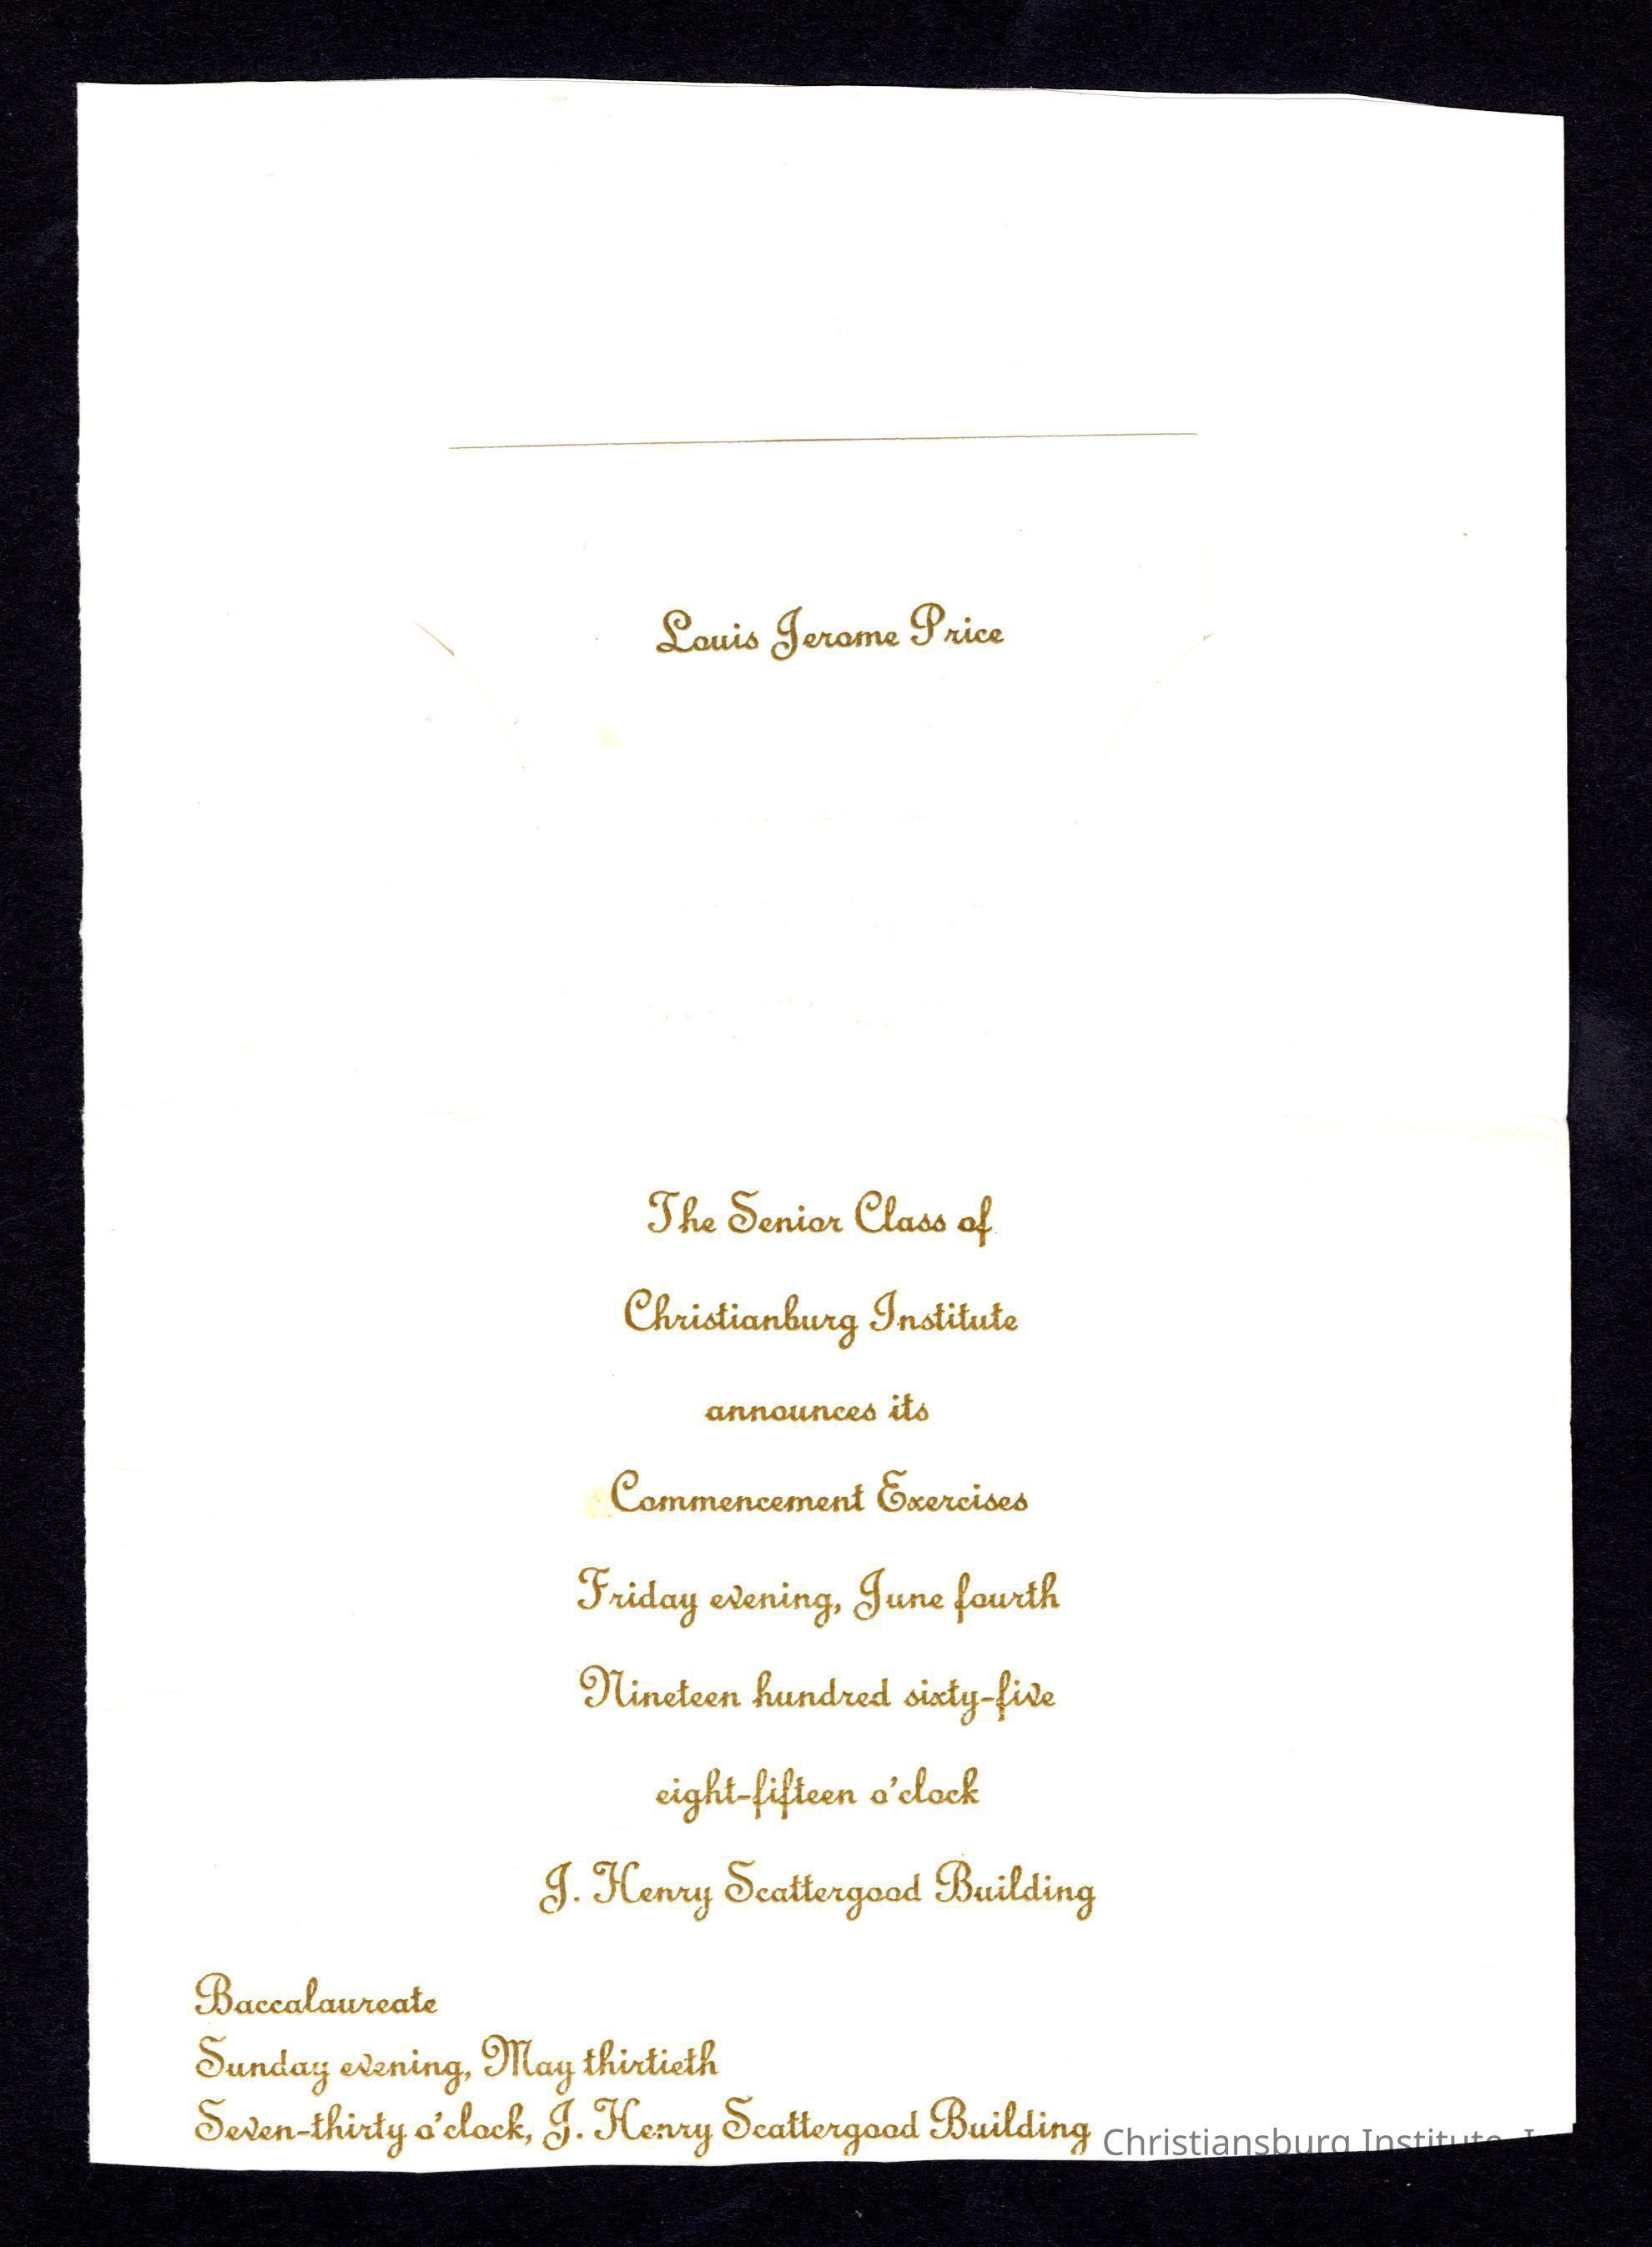 Louis Jerome Price
The Senior Class of
Christianburg Institute
announces its
Commencement Exercises
Friday evening, June fourth
Nineteen hundred sixty-five
eight-fifteen o'clock
J. Henry Scattergood Building
Baccalaureate
Sunday evening, May thirtieth
Seven-thirty o'clock, J. Henry Scattergood Building
Christiansburg Institute, I